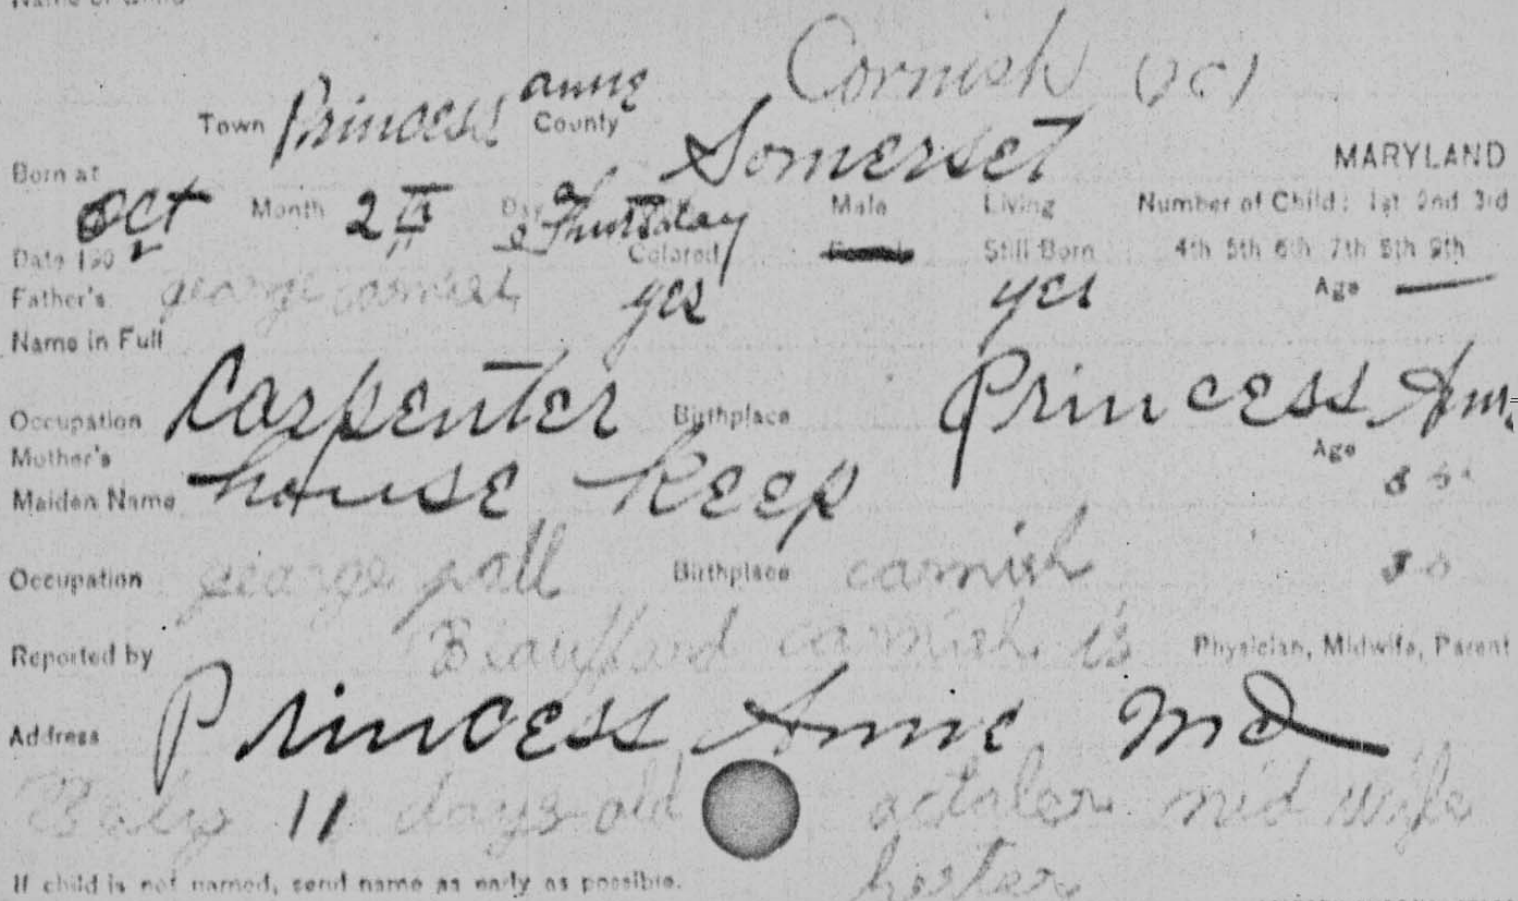 Name of Child
Cornish (C)
Town Princess anne County Somerset MARYLAND
Born at
oct Month 2 Day Thursday Male Living Number of Child: 1st 2nd 3rd
Date 190 Colored Still Born 4th 5th 6th 7th 8th 9th
Father's george cornish yes yes Age —
Name in Full
Occupation Carpenter Birthplace Princess Ann
Mother's Age
Maiden Name house Keep
Occupation george pall Birthplace cornish 30
Reported by cornish is Physician, Midwife, Parent
Address Princess Anne Md
Baby 11 days old october mid wife
If child is not named, send name as early as possible. hester